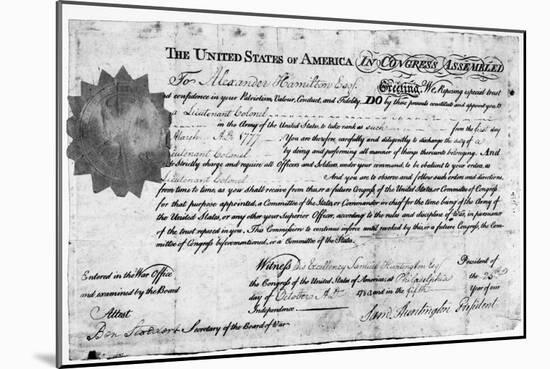 THE UNITED STATES OF AMERICA IN CONGRESS ASSEMBLED
To Alexander Hamilton Esqr. Greeting, We Reposing especial trust
and confidence in your Patriotism, Valour, Conduct, and Fidelity, DO by these presents constitute and appoint you to
a Lieutenant Colonel
in the Army of the United States, to take rank as such from the first day
March A.D. 1777 You are therefore carefully and diligently to discharge the duty of a
Lieutenant Colonel by doing and performing all manner of things thereunto belonging. And
strictly charge and require all Officers and Soldiers under your command, to be obedient to your orders as
Lieutenant Colonel And you are to observe and follow such orders and directions,
from time to time, as you shall receive from this or a future Congress of the United States, or Committee of Congress
for that purpose appointed, a Committee of the States, or Commander in chief for the time being of the Army of
the United States, or any other your Superior Officer, according to the rules and discipline of War, in pursuance
of the trust reposed in you. This Commission to continue in force until revoked by this or a future Congress, the Com
mittee of Congress before mentioned, or a Committee of the States.
Entered in the War Office
and examined by the Board
Attest
Ben Stoddert Secretary of the Board of War
Witness his Excellency Samuel Huntington Esqr. President of
the Congress of the United States of America, at Philadelphia the 28th
day of October A.D. 1780 and in the fifth Year of our
Independence
Saml. Huntington President